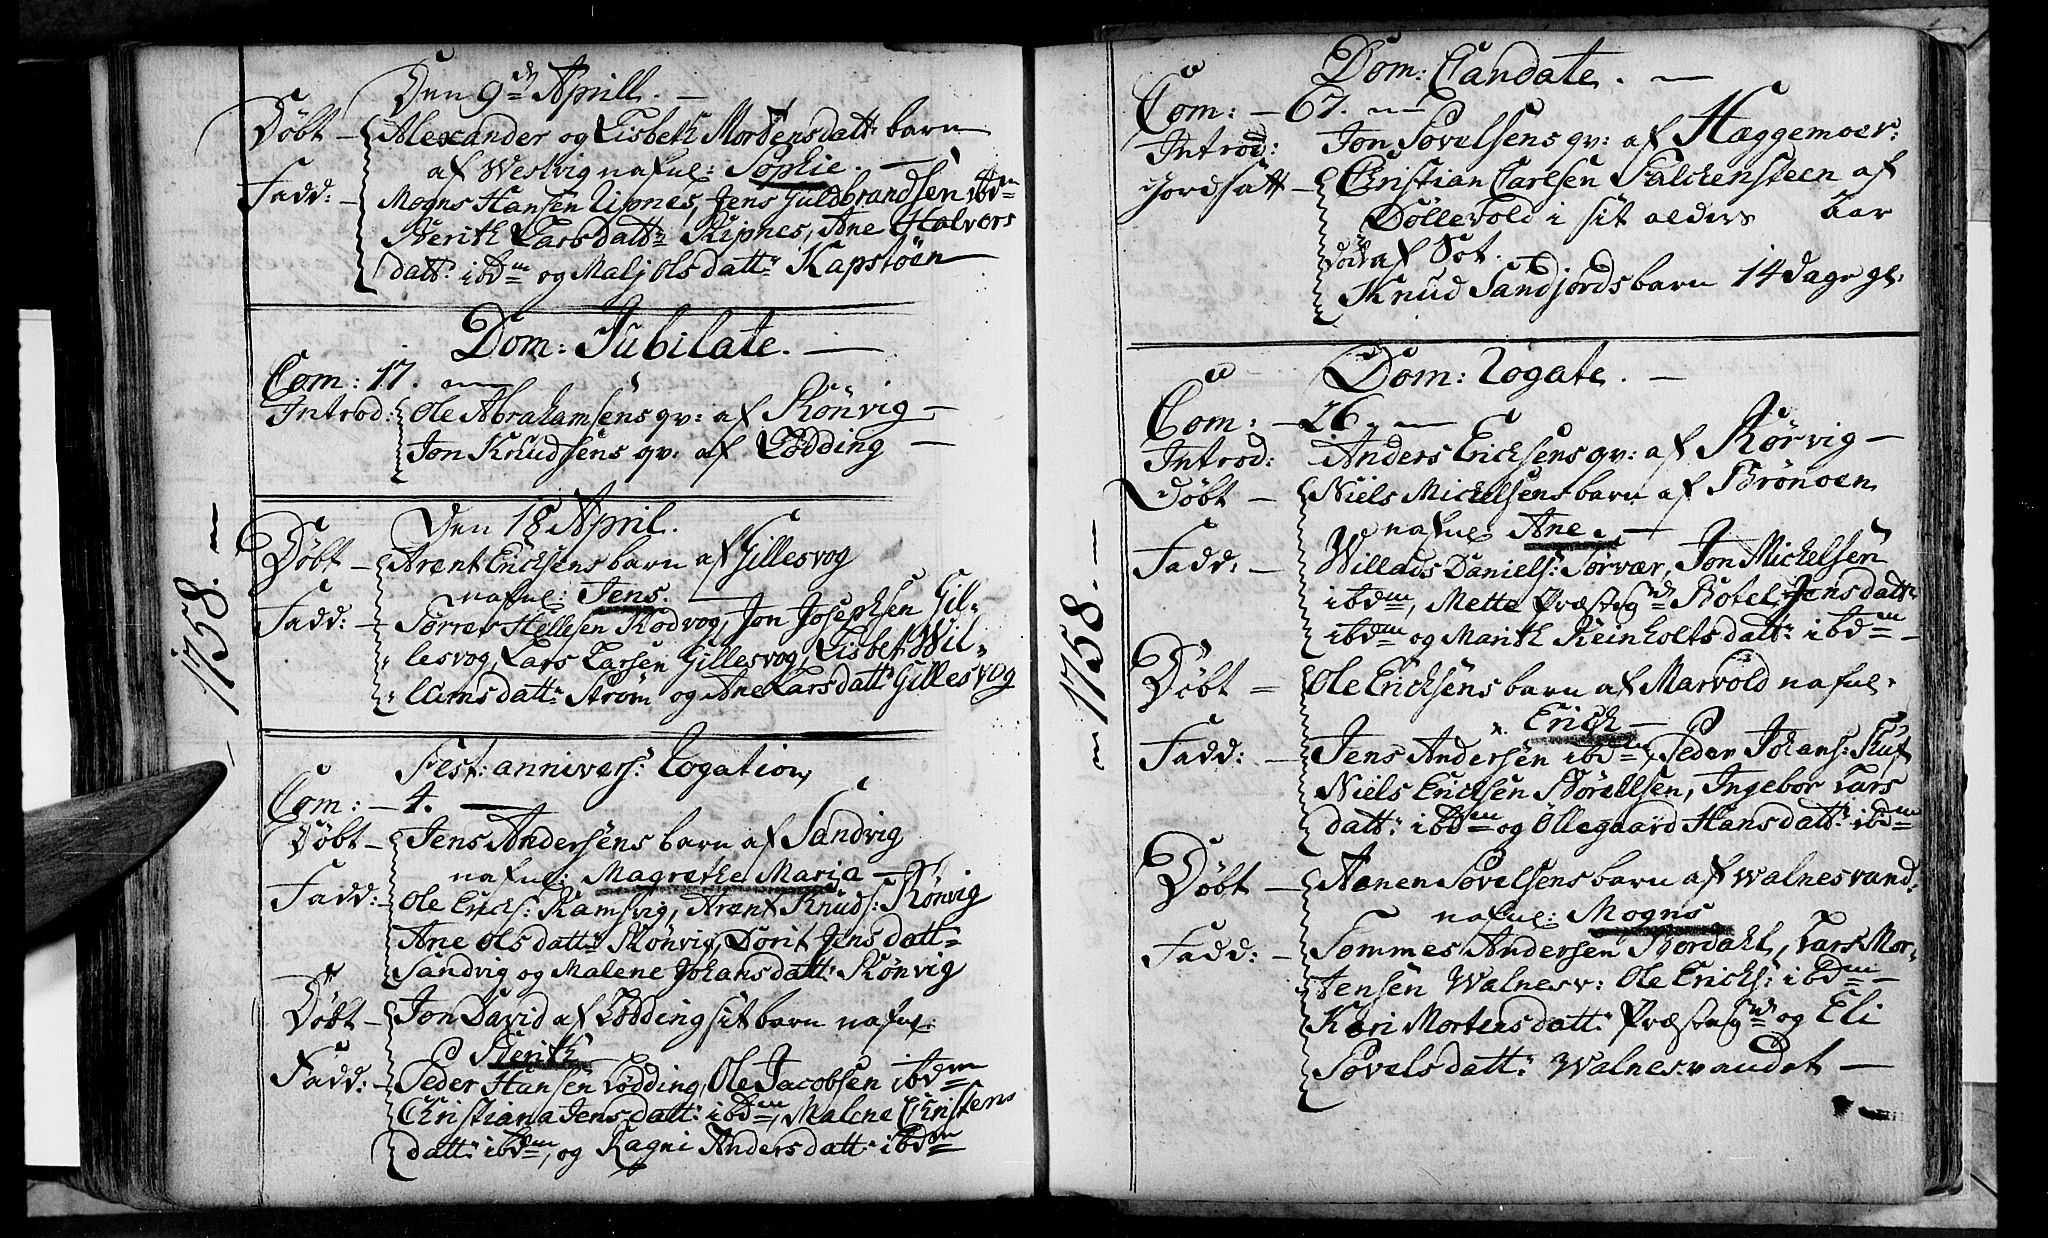 1758.
Den 9de Aprill.
Døbt - Alexander og Lisbeth Mordensdatt: barn
af Westvig nafnl: Sophie.
Fadd: - Mogns Hansen Ripnes, Jens Guldbrandsen ibdm
Berith Larsdattr Ripnes, Ane Halvors
datt: ibdm og Malj Olsdattr Kapstøen
Dom: Jubilate.
Com: 17.
Introd: Ole Abrahamsens qv: af Rønvig
Jon Knudsens qv: af Lødding
Den 18 April.
Døbt - Arent Erichsens barn af Gillesvog
nafnl: Jens.
Fadd: - Sørren Hellesen Kodvog, Jon Josephsen Gil-
lesvog, Lars Larsen Gillesvog, Lisbet Wil-
lumsdatt: Strøm og Ane Larsdattr Gillesvog
Fest: annivers: Rogation,
Com: - 4.
Døbt - Jens Andersens barn af Sandvig
nafnl: Magrethe Maria
Fadd: - Ole Erichs: Ramsvig, Arent Knuds: Rønvig
Ane Olsdattr Rønvig, Dorit Jensdatt-
Sandvig og Malene Johansdatt: Rønvig
Døbt - Jon David af Lødding sit barn nafnl:
Berith
Fadd: - Peder Hansen Lødding, Ole Jacobsen ibdm
Christiana Jensdatt: ibdm, Malene Christens
datt: ibdm, og Ragni Andersdatt: ibdm
1758.
Dom: Cantate.
Com: - 67.
Introd: Jon Sovelsens qv: af Hæggemoer:
Jordsatt - Christian Carlsen Falchensteen af
Døllevold i sit alders aar
død af Sot.
Knud Sandjords barn 14 dage gl:
Dom: Rogate.
Com: - 26.
Introd: Anders Erichsens qv: af Rørvig
Døbt - Niels Michelsens barn af Brønoen
nafnl Ane.
Fadd: - Willads Daniels: Sørvær, Jon Michelsen
ibdm, Mette Præstegd Botel Jensdattr
ibdm og Marith Reinholtsdatt: ibdm
Døbt - Ole Erichsens barn af Marvold nafnl:
Erich
Fadd: - Jens Andersen ibdm, Peder Johans:
Niels Erichsen, Ingebor Lars
datt: ibdm og Ollegaard Hansdattr ibdm
Døbt - Aanen Sovelsens barn af Walnesvand:
nafnl: Mogns
Fadd: - Tommes Andersen Nordahl, Lars Mor-
tensen Walnesv: Ole Erichs: ibdm
Kari Mortensdatt: Præstegd og Eli
Sovelsdatt: Walnesvandet